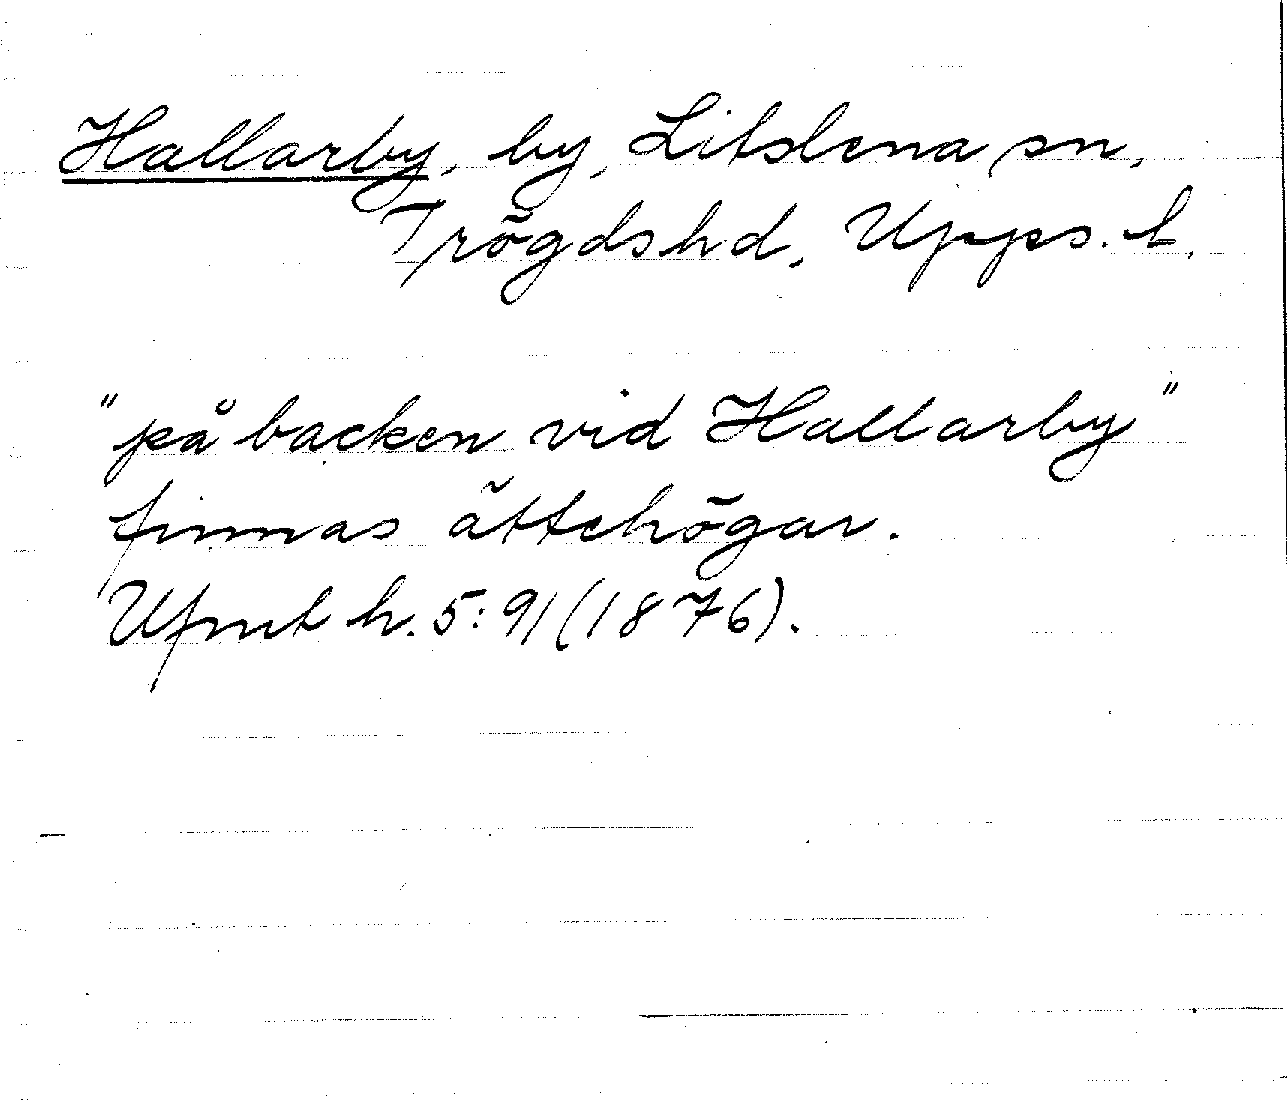 Hallarby, by, Litslena sn,
Trögds hd, Upps. l.
"på backen vid Hallarby"
finnas ättehögar.
Ufmt h. 5:91 (1876).